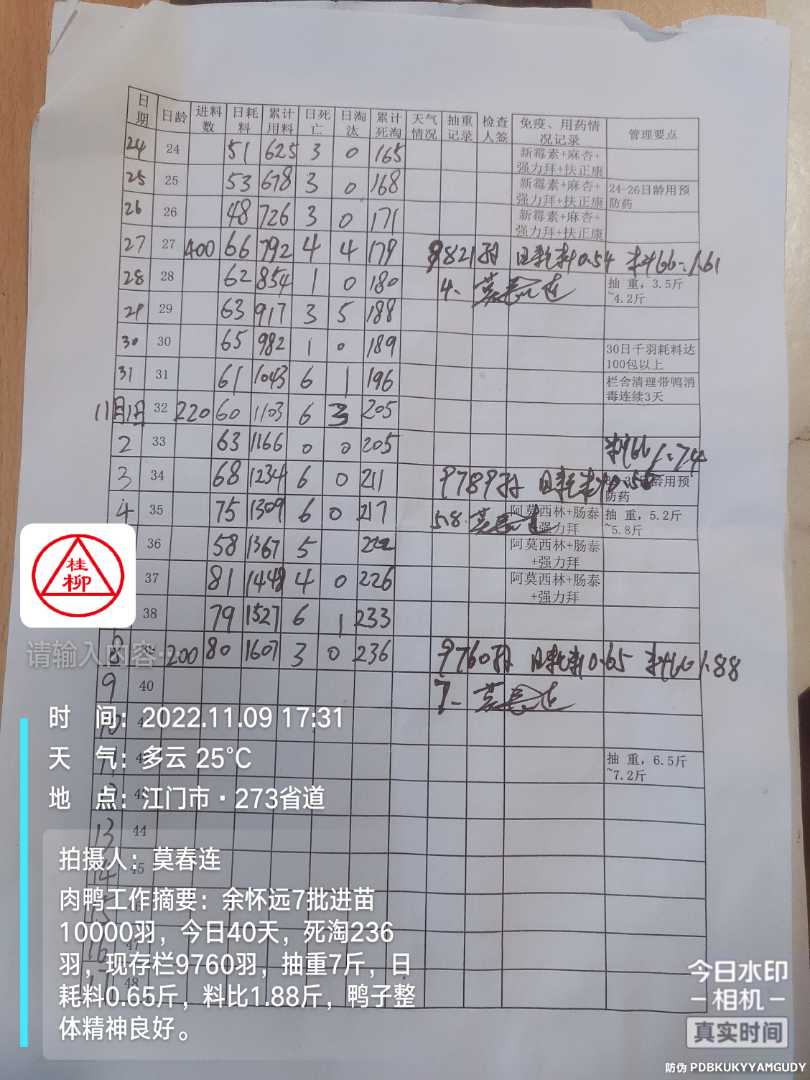 日期 日龄 进料数 日耗料 累计用料 日死亡 日淘汰 累计死淘 天气情况 抽重记录 检查人签 免疫、用药情况记录 管理要点
24 24 51 625 3 0 165 新霉素+麻杏+强力拜+扶正康
25 25 53 678 3 0 168 新霉素+麻杏+强力拜+扶正康 24-26日龄用预防药
26 26 48 726 3 0 171 新霉素+麻杏+强力拜+扶正康
27 27 400 66 792 4 4 179 9821羽 日耗料0.54 料比1.61
28 28 62 854 1 0 180 4. 莫春连 抽重,3.5斤~4.2斤
29 29 63 917 3 5 188
30 30 65 982 1 0 189 30日千羽耗料达100包以上
31 31 61 1043 6 1 196 栏舍清理带鸭消毒连续3天
11月1日 32 220 60 1103 6 3 205
2 33 63 1166 0 0 205 料比1.74
3 34 68 1234 6 0 211 9789羽 日耗料 龄用预防药
4 35 75 1309 6 0 217 5.8. 莫春连 阿莫西林+肠泰+强力拜 抽重,5.2斤~5.8斤
36 58 1367 5 222 阿莫西林+肠泰+强力拜
37 81 1448 4 0 226 阿莫西林+肠泰+强力拜
38 79 1527 6 1 233
8 39 200 80 1607 3 0 236 9760羽 日耗料0.65 料比1.88
9 40 7. 莫春连
抽重,6.5斤~7.2斤
13 44
14 45
48
桂柳
请输入内容
时 间:2022.11.09 17:31
天 气:多云 25°C
地 点:江门市·273省道
拍摄人:莫春连
肉鸭工作摘要:余怀远7批进苗
10000羽,今日40天,死淘236
羽,现存栏9760羽,抽重7斤,日
耗料0.65斤,料比1.88斤,鸭子整
体精神良好。
今日水印
相机
真实时间
防伪 PDBKUKYYAMGUDY